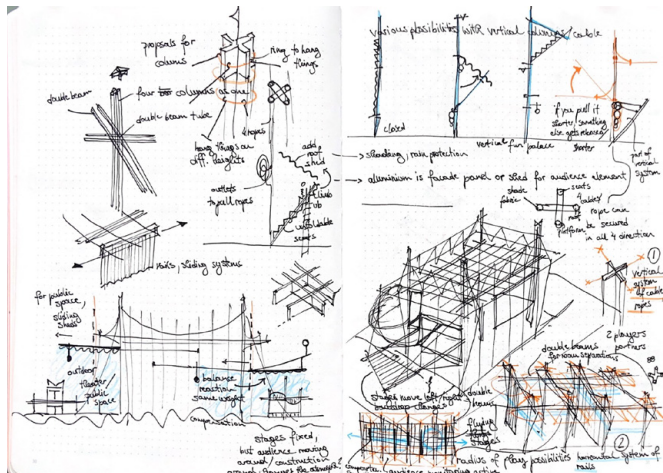 proposals for
colums
ring to hang
things
double beam
four columns as one
double beam tube
hang things on
diff. heights
ropes
add
roof
shed
outlets
to pull ropes
climb
up
unfoldable
seats
rails, sliding systems
for public
space,
sliding
sheds
outdoor
theater
public
space
balance
maintain
same weight
compensation
stages fixed,
but audience moving
around / construction
various possibilities with vertical column, cable
closed
vertical fun palace
shorter
if you pull it
shorter, something
else gets released
part of
vertical
system
→ shading, rain protection
→ aluminium is facade panel or shed for audience element
shade
fabric
seats
4 cables/
rope can
be secured
in all 4 direction
platform
roof
1
vertical
system
of cable
ropes
2 players
partners
double beams
for room separations
stages move left, right
backdrop changes
double
beams
flying
stages
2
radius of play possibilities horizontal system of
rails